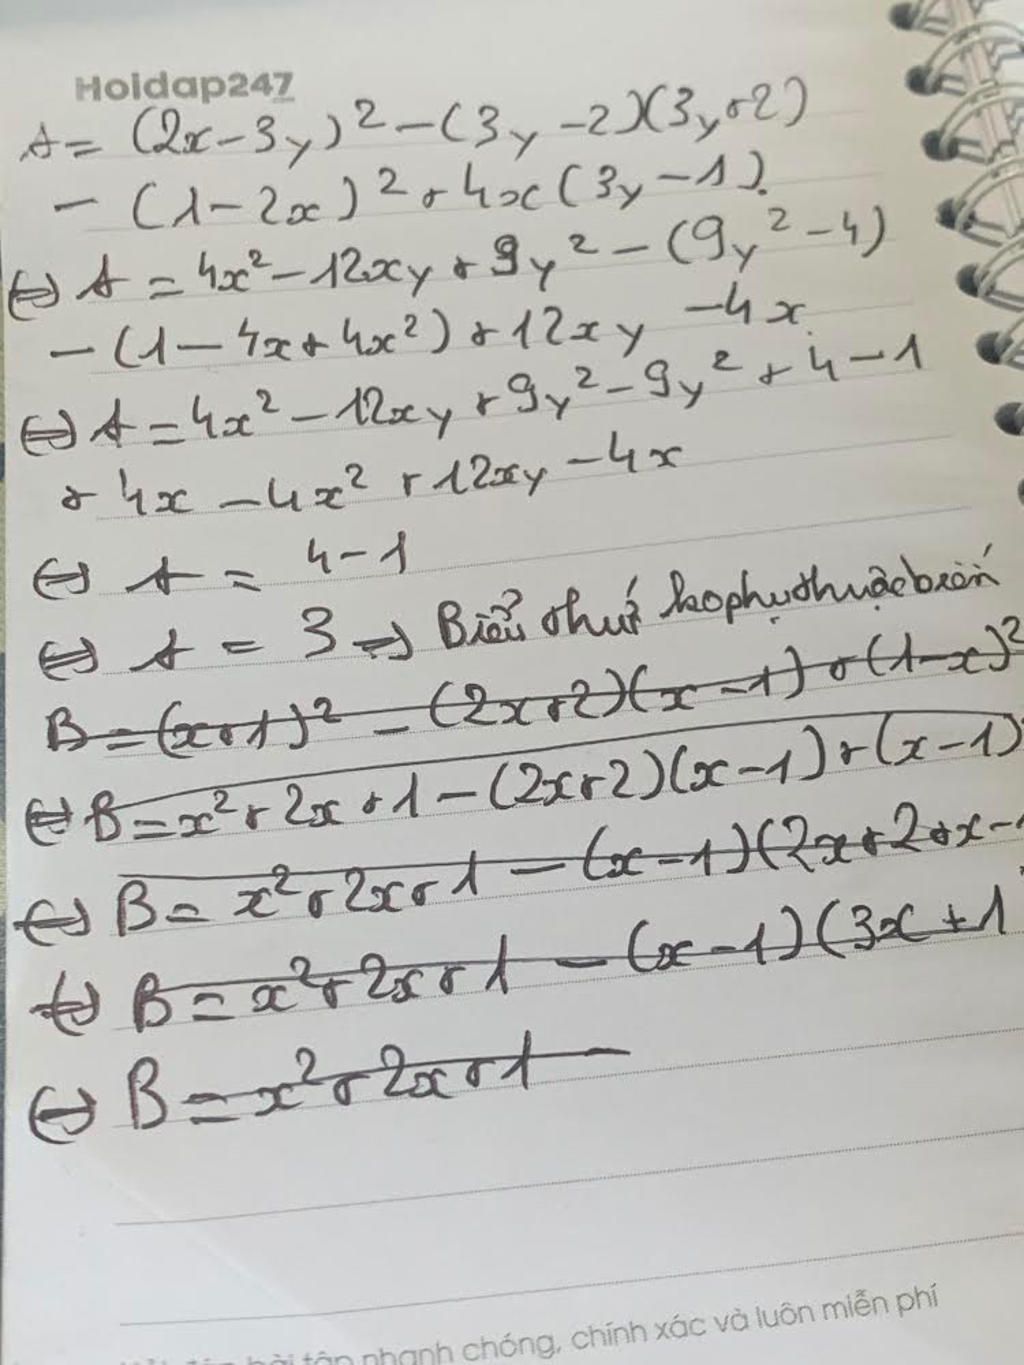 Hoidap247
A = (2x-3y)² - (3y-2)(3y+2)
- (1-2x)² + 4x(3y-1).
(=) A = 4x² - 12xy + 9y² - (9y² - 4)
- (1 - 4x + 4x²) + 12xy - 4x.
(=) A = 4x² - 12xy + 9y² - 9y² + 4 - 1
+ 4x - 4x² + 12xy - 4x
(=) A = 4-1
(=) A = 3 => Biểu thức ko phụ thuộc biến
B = (x+1)² - (2x+2)(x-1) + (1-x)²
(=) B = x² + 2x + 1 - (2x+2)(x-1) + (x-1)²
(=) B = x² + 2x + 1 - (x-1)(2x+2+x-1
(=) B = x² + 2x + 1 - (x-1)(3x+1
(=) B = x² + 2x + 1 -
bài tập nhanh chóng, chính xác và luôn miễn phí